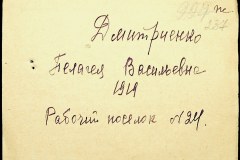 Дмитриенко
Пелагея Васильевна
1919
Рабочий поселок №24.